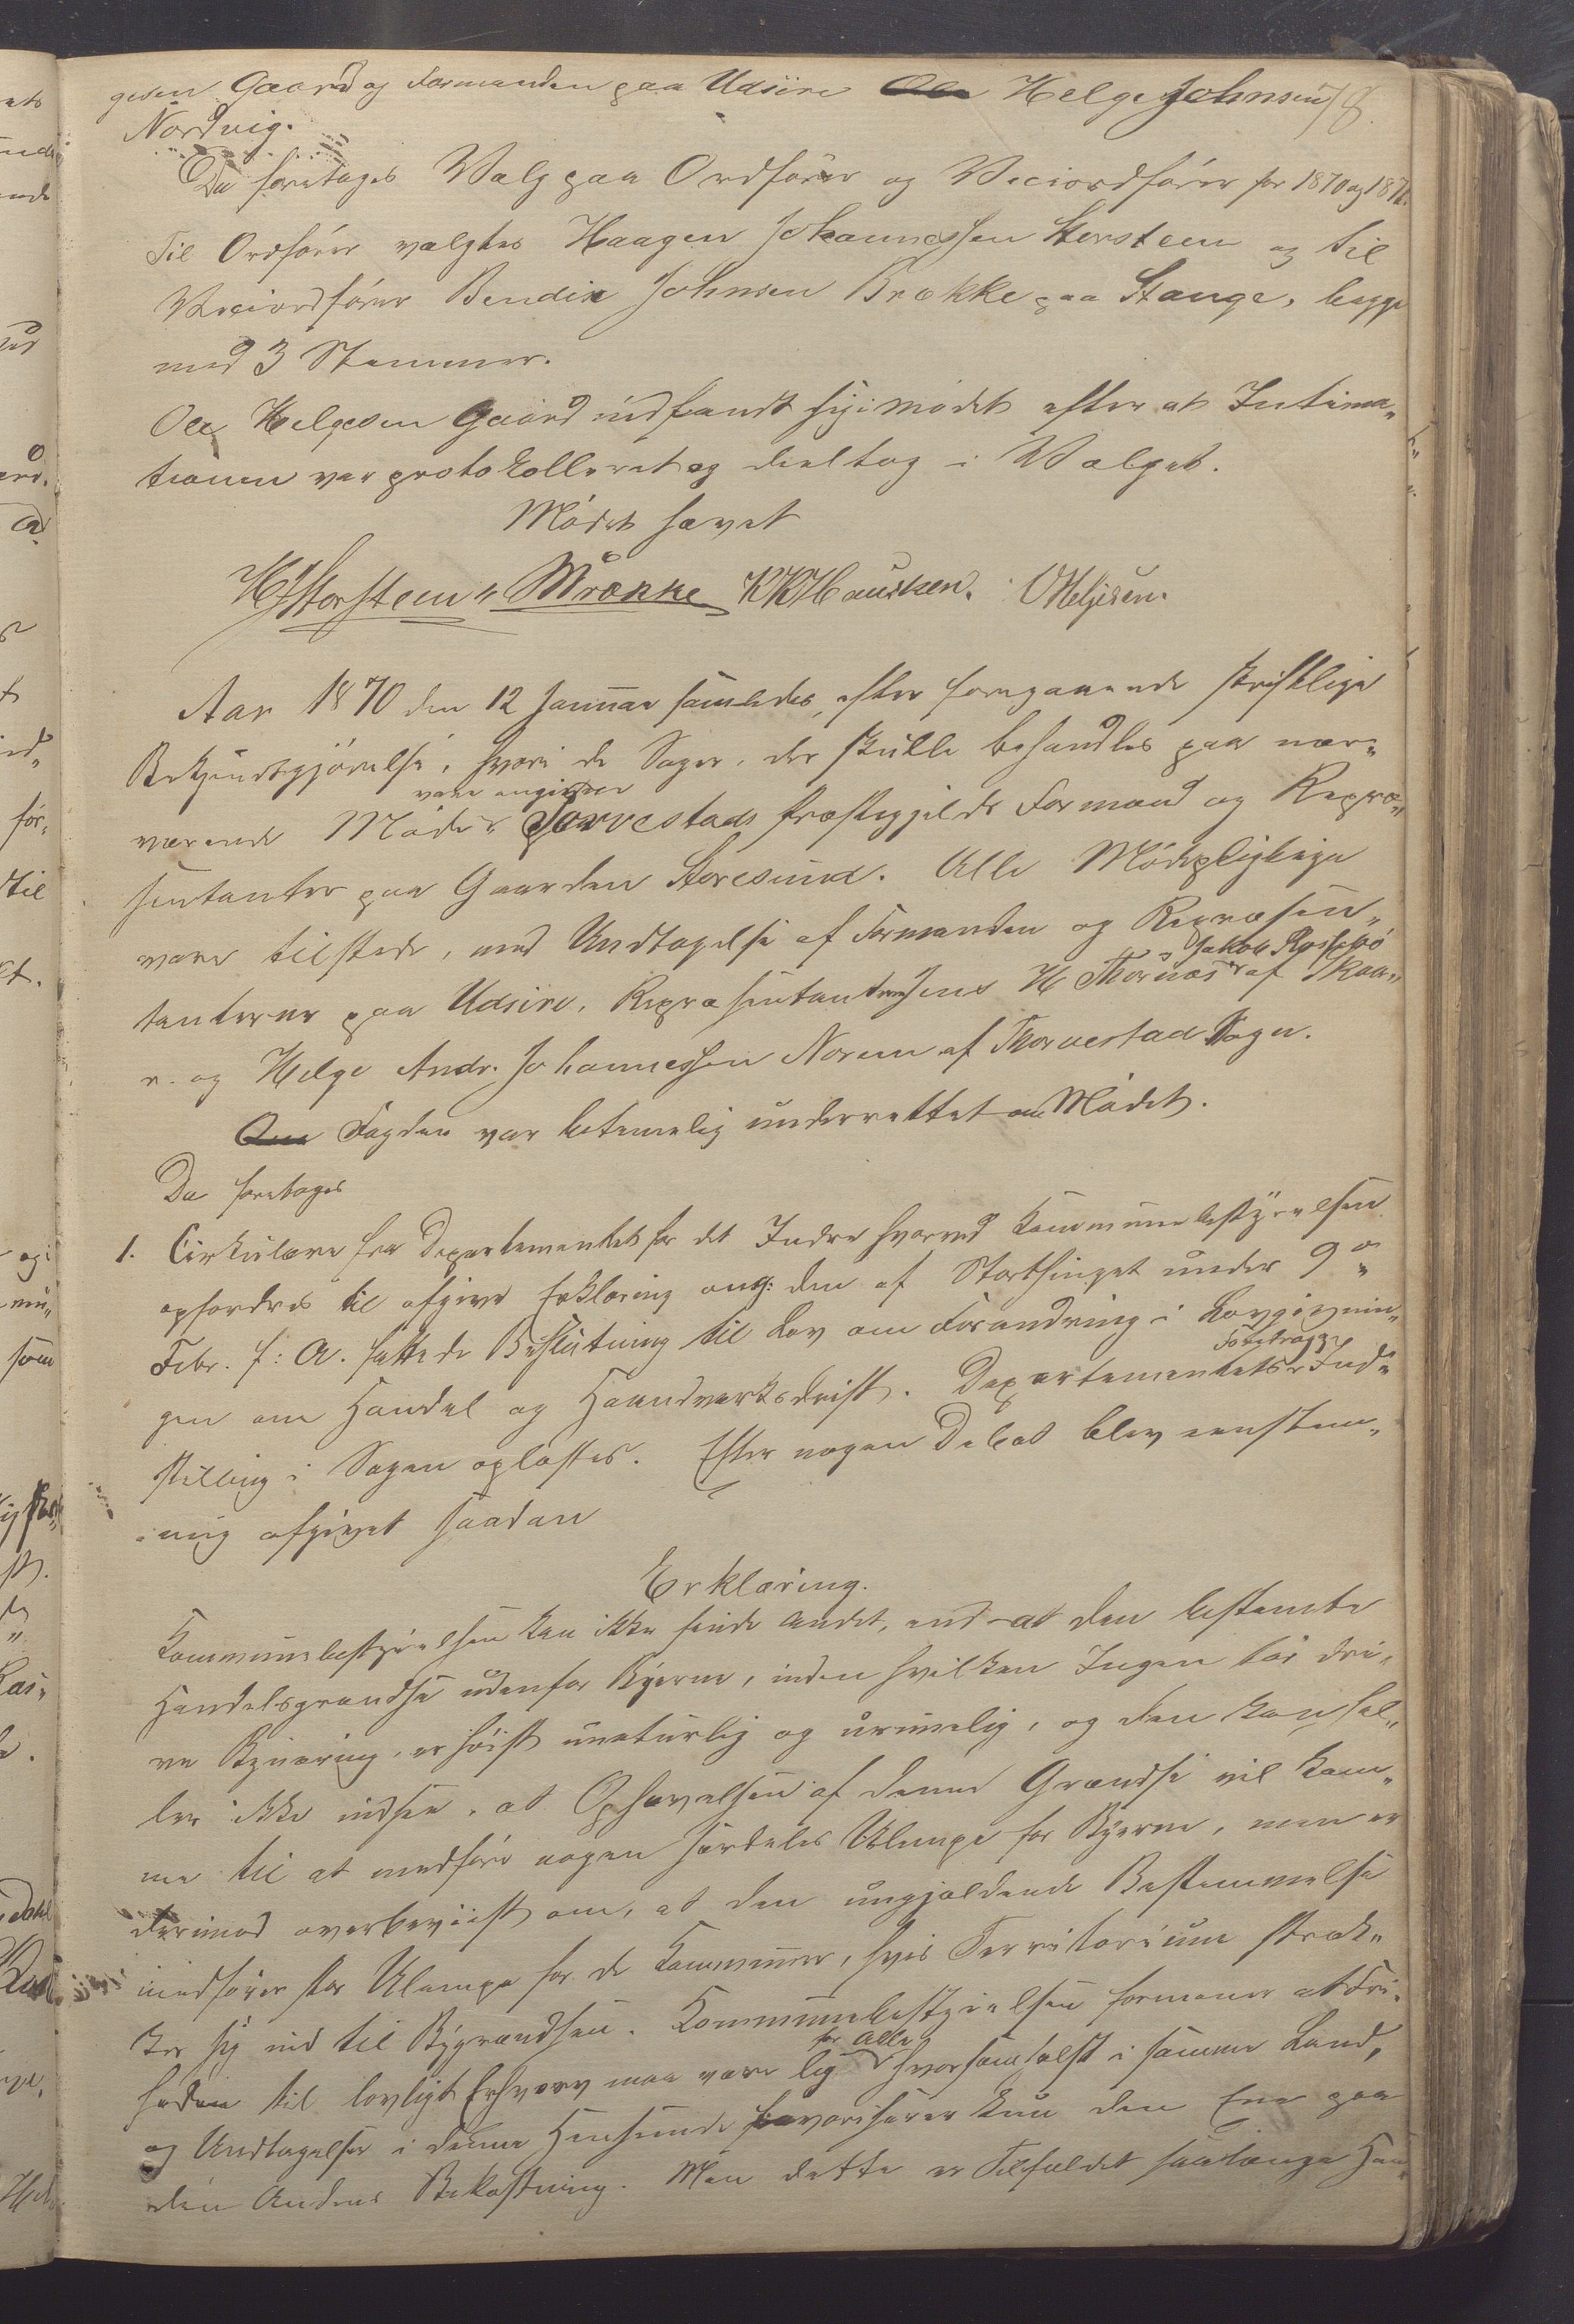 gesen Gaard og Formanden paa Udsire Ole Helge Johnsen 78.
Nordvig.
Da foretages Valg paa Ordfører og Viceordfører for 1870 og 1871.
Til Ordfører valgtes Haagen Johannessen Storsteen og til
Viceordfører Bendix Johnsen Brække paa Stange, begge
med 3 Stemmer.
Ole Helgesen Gaard indfandt sig i Mødet efter at Intima„
tionen var protokolleret og deeltog i Valget.
Mødet hævet
HJStorsteen BBrække KKHausken. OHelgesen.
Aar 1870 den 12 Januar samledes, efter foregaaende skriftlige
Bekjendtgjørelse, hvori de Sager, der skulle behandles paa nær„
vare angivne
værende Møde Torvestads Præstegjelds Formænd og Repræ„
sentanter paa Gaarden Storesund. Alle Mødepligtige
vare tilstede, med Undtagelse af Formanden og Repræsen„
tanterne paa Udsire, Repræsentanterne Jens H Thornæs af Skaa„
Jakob Røssebø
r. og Helge Andr. Johannessen Norem af Thorvestad Sogn.
Om Fogden var betimelig underrettet om Mødet.
Da foretages
1. Cirkulære fra Departementet for det Indre hvorved Kommunebestyrelsen
opfordres til afgive Erklæring ang: den af Storthinget under 9de
Febr. f: A. fattede Beslutning til Lov om Forandring i Lovgivnin„
gen om Handel og Haandverksdrift. Departementets Ind„
Foredrag
stilling i Sagen oplæstes. Efter nogen Debat blev eenstem„
mig afgivet saadan
Erklæring.
Kommunebestyrelsen kan ikke finde andet, end at den bestemte
Handelsgrændse udenfor Byerne, inden hvilken Ingen tør dri„
ve Bynæring, er høist unaturlig og urimelig, og den kan hel„
ler ikke indsee, at Ophævelsen af denne Grændse vil kom„
me til at medføre nogen særdeles Ulempe for Byerne, men er
derimod overbeviist om, at den nugjældende Bestemmelse
medfører stor Ulempe for de Kommuner, hvis Territorium stræk„
ker sig ind til Bygrændsen. Kommunebestyrelsen formener at Fri„
for Alle
heden til lovligt Erhverv maa være lig hvorsomhelst i samme Land,
og Undtagelser i denne Henseende favoriserer kun den Ene paa
den Andens Bekostning. Men dette er Tilfældet saalænge Han„